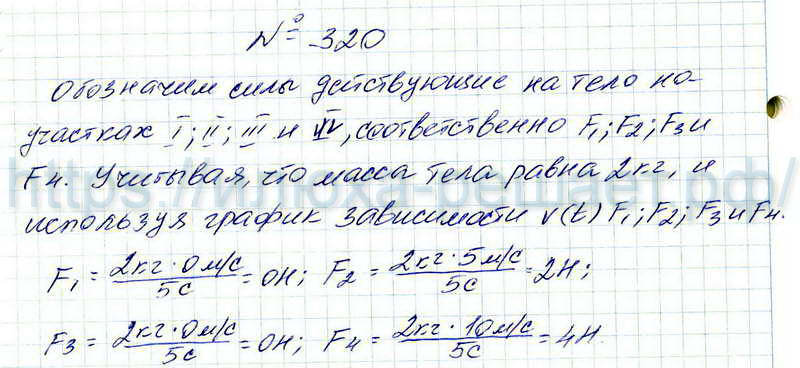 № 320
Обозначим силы действующие на тело на
участках I; II; III и IV, соответственно F₁; F₂; F₃ и
F₄. Учитывая, что масса тела равна 2кг, и
используя график зависимости v(t) F₁; F₂; F₃ и F₄.
F₁ = 2кг·0м/с / 5с = 0Н; F₂ = 2кг·5м/с / 5с = 2Н;
F₃ = 2кг·0м/с / 5с = 0Н; F₄ = 2кг·10м/с / 5с = 4Н.